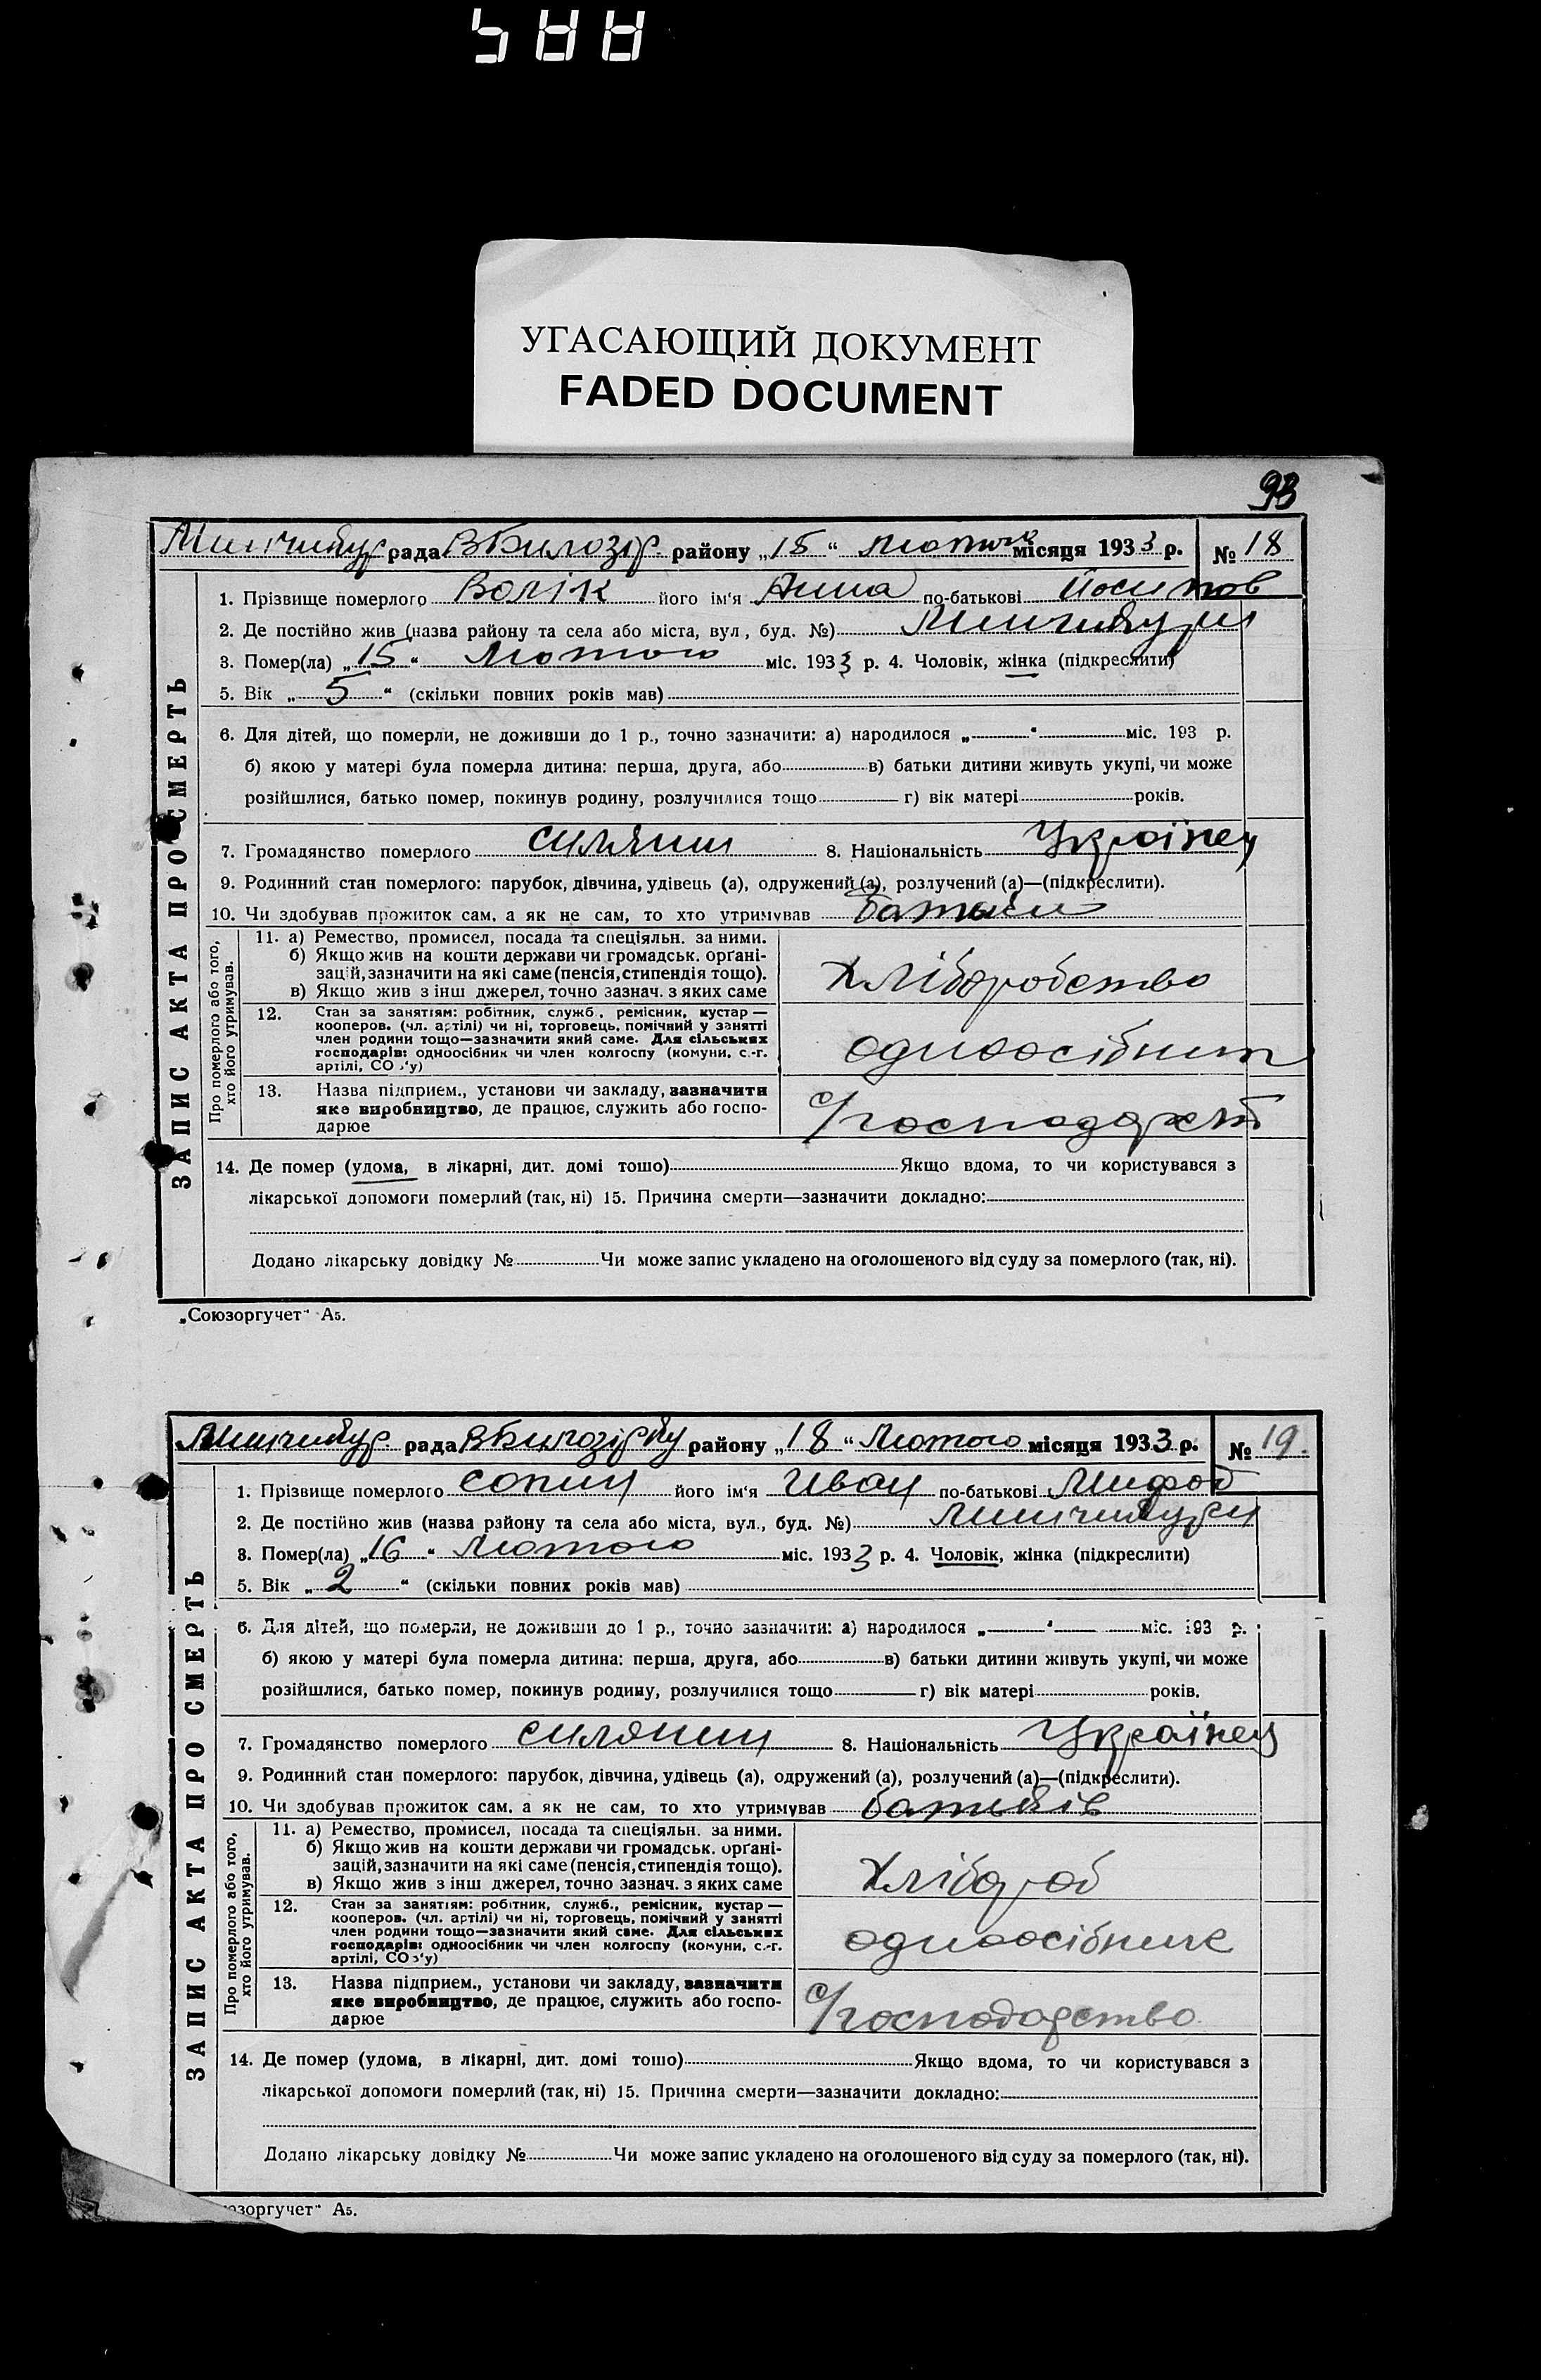 УГАСАЮЩИЙ ДОКУМЕНТ
FADED DOCUMENT
93
ЗАПИС АКТА ПРО СМЕРТЬ
рада район​у „15“ Лютого місяця 1933 р. № 18
1. Прізвище померлого Волік його ім'я Анна по-батькові Йосипов
2. Де постійно жив (назва району та села або міста, вул., буд. №)
3. Помер(ла) „15“ Лютого міс. 1933 р. 4. Чоловік, жінка (підкреслити)
5. Вік „5“ (скільки повних років мав)
6. Для дітей, що померли, не доживши до 1 р., точно зазначити: а) народилося „ “ міс. 193 р.
б) якою у матері була померла дитина: перша, друга, або в) батьки дитини живуть укупі, чи може
розійшлися, батько помер, покинув родину, розлучилися тощо г) вік матері років.
7. Громадянство померлого силянин 8. Національність Українец
9. Родинний стан померлого: парубок, дівчина, удівець (а), одружений (а), розлучений (а)—(підкреслити).
10. Чи здобував прожиток сам, а як не сам, то хто утримував батьки
Про померлого або того, хто його утримував.
11. а) Ремество, промисел, посада та спеціяльн. за ними.
б) Якщо жив на кошти держави чи громадськ. орґані-
зацій, зазначити на які саме (пенсія, стипендія тощо).
в) Якщо жив з інш джерел, точно зазнач. з яких саме
Хліборобство
12. Стан за занятіям: робітник, служб., ремісник, кустар—
кооперов. (чл. артілі) чи ні, торговець, помічний у занятті
член родини тощо—зазначити який саме. Для сільських
господарів: одноосібник чи член колгоспу (комуни, с.-г.
артілі, СОЗ'у)
13. Назва підприєм., установи чи закладу, зазначити
яке виробництво, де працює, служить або госпо-
дарює
14. Де помер (удома, в лікарні, дит. домі тошо) Якщо вдома, то чи користувався з
лікарської допомоги померлий (так, ні) 15. Причина смерти—зазначити докладно:
Додано лікарську довідку № Чи може запис укладено на оголошеного від суду за померлого (так, ні).
„Союзоргучет“ А5.
ЗАПИС АКТА ПРО СМЕРТЬ
рада району „18“ Лютого місяця 1933 р. № 19
1. Прізвище померлого його ім'я Иван по-батькові
2. Де постійно жив (назва району та села або міста, вул., буд. №)
3. Помер(ла) „16“ Лютого міс. 1933 р. 4. Чоловік, жінка (підкреслити)
5. Вік „2“ (скільки повних років мав)
6. Для дітей, що померли, не доживши до 1 р., точно зазначити: а) народилося „ “ міс. 193 р.
б) якою у матері була померла дитина: перша, друга, або в) батьки дитини живуть укупі, чи може
розійшлися, батько помер, покинув родину, розлучилися тощо г) вік матері років.
7. Громадянство померлого силянин 8. Національність Українец
9. Родинний стан померлого: парубок, дівчина, удівець (а), одружений (а), розлучений (а)—(підкреслити).
10. Чи здобував прожиток сам, а як не сам, то хто утримував батьків
Про померлого або того, хто його утримував.
11. а) Ремество, промисел, посада та спеціяльн. за ними.
б) Якщо жив на кошти держави чи громадськ. орґані-
зацій, зазначити на які саме (пенсія, стипендія тощо).
в) Якщо жив з інш джерел, точно зазнач. з яких саме
Хлібороб
12. Стан за занятіям: робітник, служб., ремісник, кустар—
кооперов. (чл. артілі) чи ні, торговець, помічний у занятті
член родини тощо—зазначити який саме. Для сільських
господарів: одноосібник чи член колгоспу (комуни, с.-г.
артілі, СОЗ'у)
одноосібник
13. Назва підприєм., установи чи закладу, зазначити
яке виробництво, де працює, служить або госпо-
дарює
с/господарство
14. Де помер (удома, в лікарні, дит. домі тошо) Якщо вдома, то чи користувався з
лікарської допомоги померлий (так, ні) 15. Причина смерти—зазначити докладно:
Додано лікарську довідку № Чи може запис укладено на оголошеного від суду за померлого (так, ні).
юзоргучет“ А5.